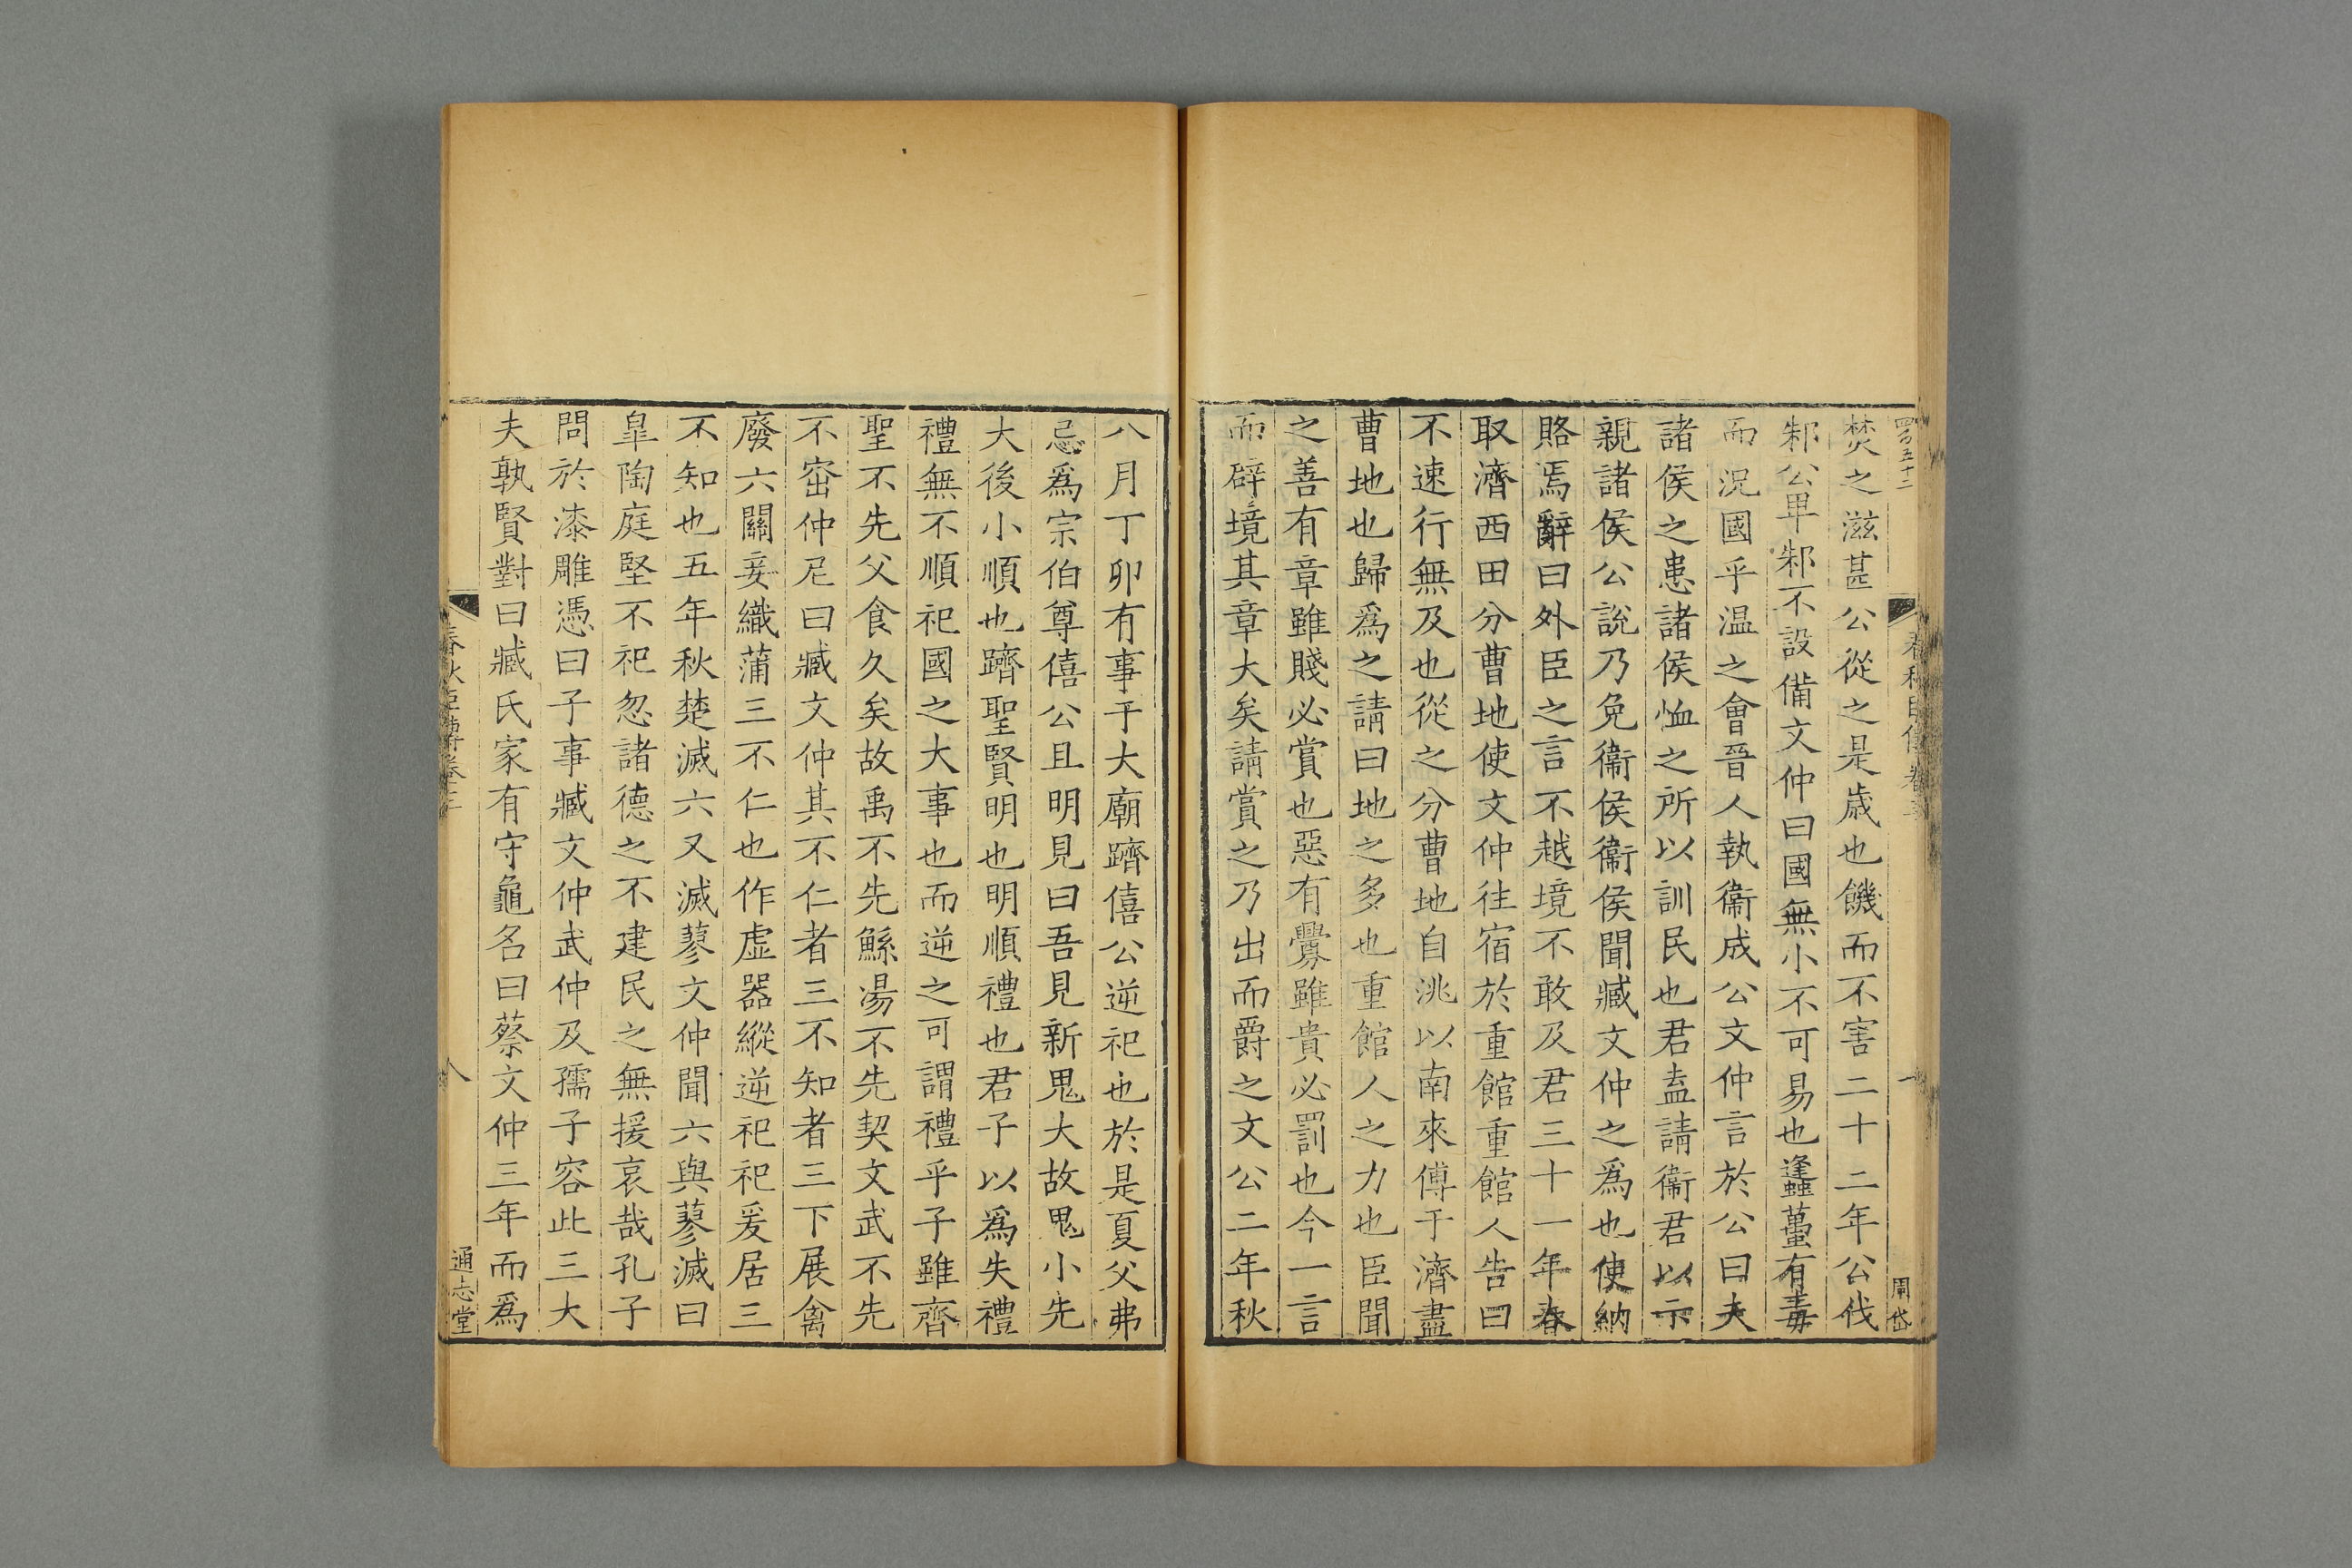 焚之滋甚公從之是歲也饑而不害二十二年公伐
邾公卑邾不設備文仲曰國無小不可易也蠭蠆有毒
而況國乎温之會晉人執衞成公文仲言於公曰夫
諸侯之患諸侯恤之所以訓民也君盍請衞君以示
親諸侯公說乃免衞侯衞侯聞臧文仲之爲也使納
賂焉辭曰外臣之言不越境不敢及君三十一年春
取濟西田分曹地使文仲往宿於重館重館人告曰
不速行無及也從之分曹地自洮以南來傅于濟盡
曹地也歸爲之請曰地之多也重館人之力也臣聞
之善有章雖賤必賞也惡有釁雖貴必罰也今一言
而辟境其章大矣請賞之乃出而爵之文公二年秋
八月丁卯有事于大廟躋僖公逆祀也於是夏父弗
忌爲宗伯尊僖公且明見曰吾見新鬼大故鬼小先
大後小順也躋聖賢明也明順禮也君子以爲失禮
禮無不順祀國之大事也而逆之可謂禮乎子雖齊
聖不先父食久矣故禹不先鯀湯不先契文武不先
不窋仲尼曰臧文仲其不仁者三不知者三下展禽
廢六關妾織蒲三不仁也作虛器縱逆祀祀爰居三
不知也五年秋楚滅六又滅蓼文仲聞六與蓼滅曰
臯陶庭堅不祀忽諸德之不建民之無援哀哉孔子
問於漆雕憑曰子事臧文仲武仲及孺子容此三大
夫孰賢對曰臧氏家有守龜名曰蔡文仲三年而爲
春秋臣傳卷三
八
通志堂